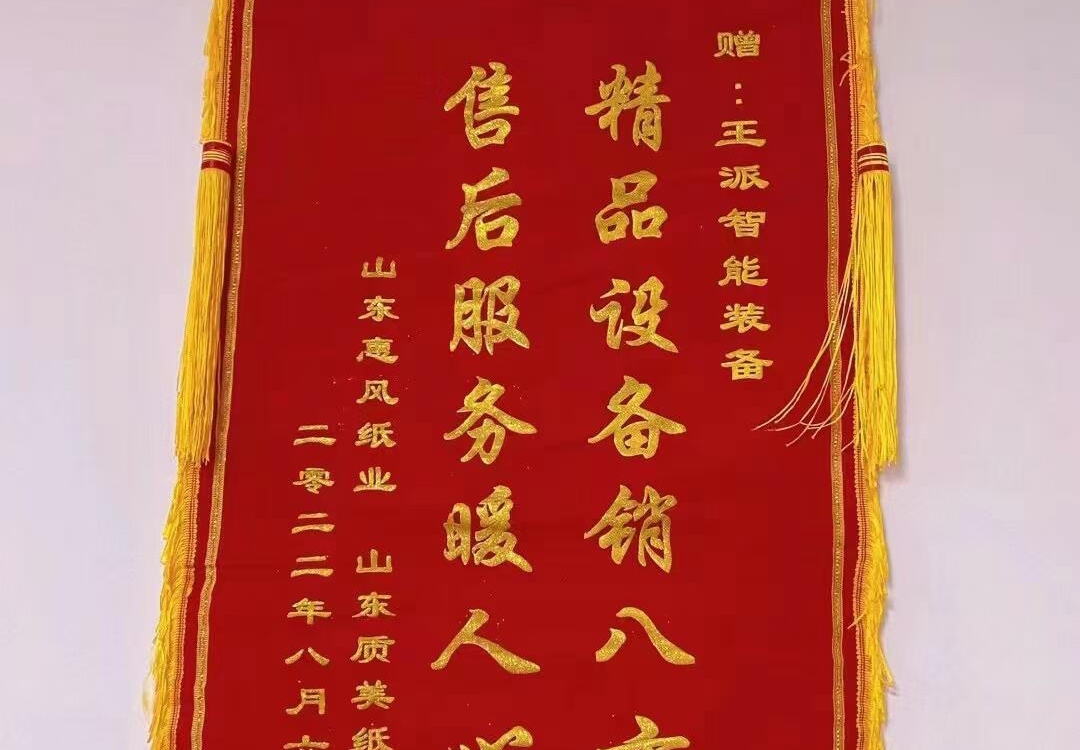 赠：王派智能装备
精品设备销八
售后服务暖人
山东惠风纸业 山东质美纸
二零二二年八月